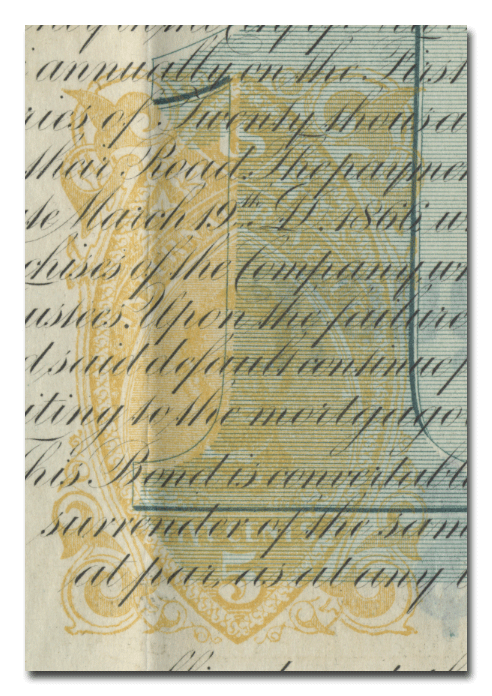 annually on the First
ries of Twenty thousa
their Road. The payment
te March 19th D. 1866 w
chises of the Company wi
ustees. Upon the future
d said default continue f
iting to the mortgagor
This Bond is convertabl
surrender of the sam
at par, as at any
U.S.
5